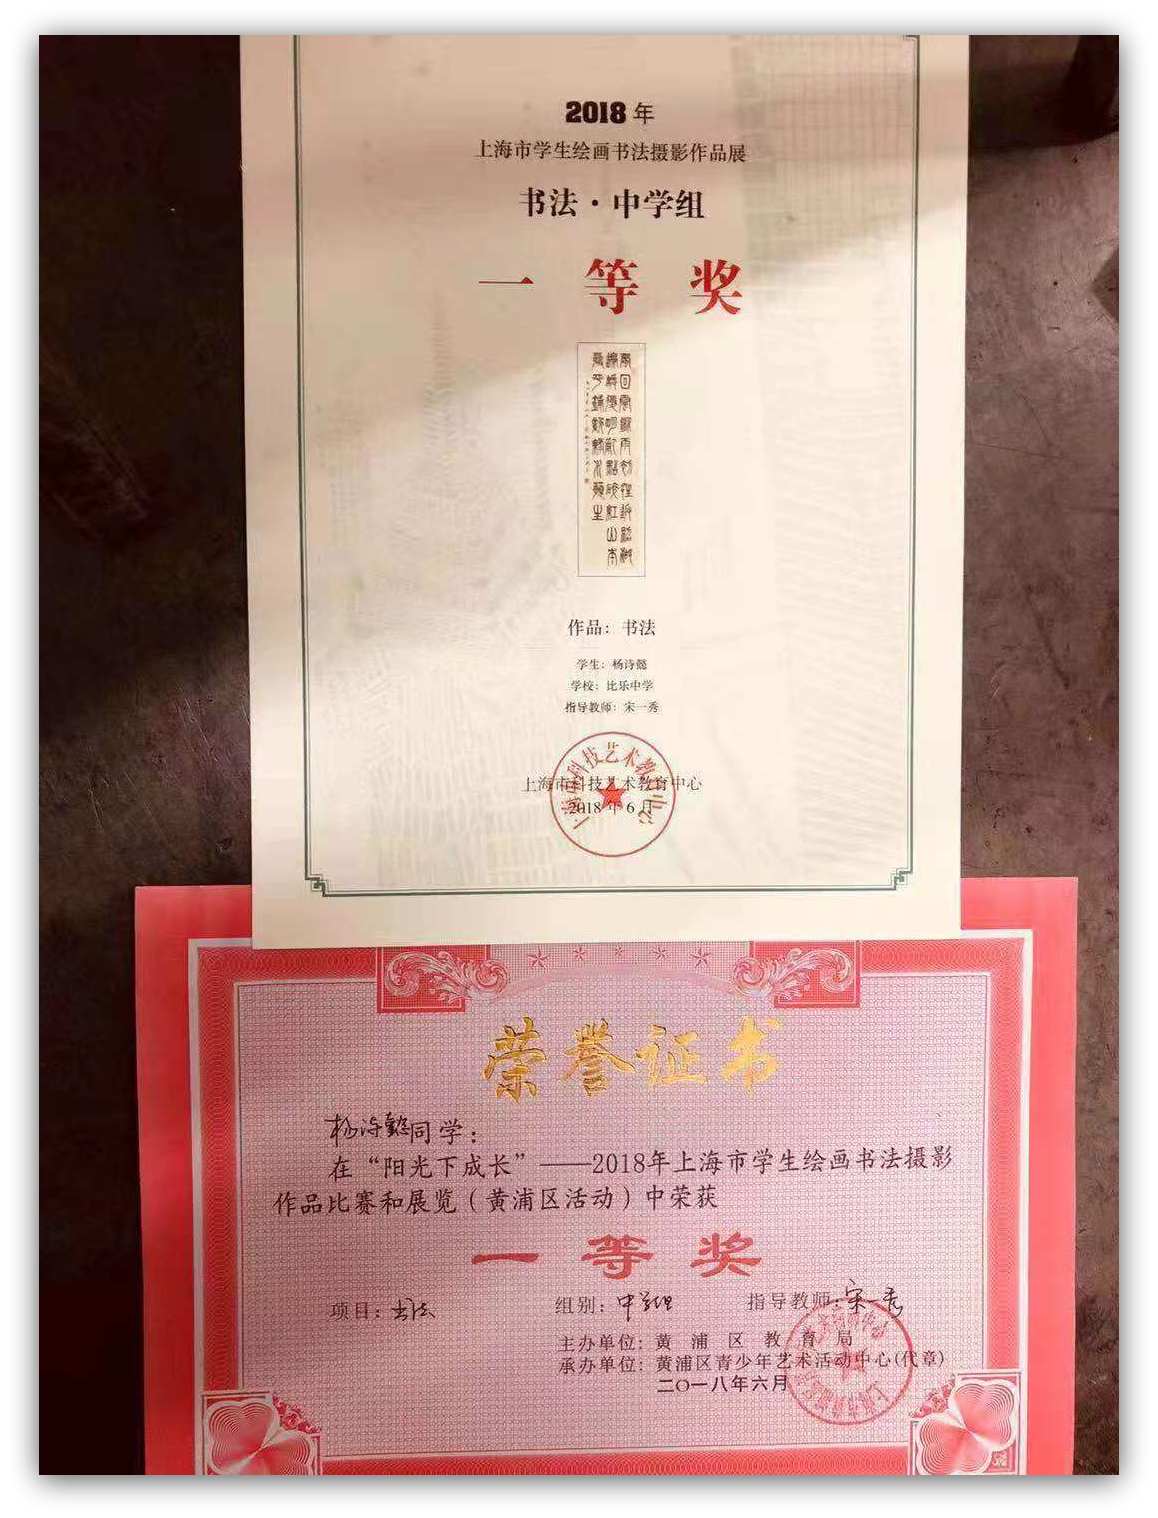 2018年
上海市学生绘画书法摄影作品展
书法·中学组
一等奖
作品：书法
学生：杨诗懿
学校：比乐中学
指导教师：宋一秀
上海市科技艺术教育中心
2018年6月
荣誉证书
杨诗懿同学：
在“阳光下成长”——2018年上海市学生绘画书法摄影
作品比赛和展览（黄浦区活动）中荣获
一等奖
项目：书法
组别：中学组
指导教师：宋一秀
主办单位：黄浦区教育局
承办单位：黄浦区青少年艺术活动中心(代章)
二〇一八年六月